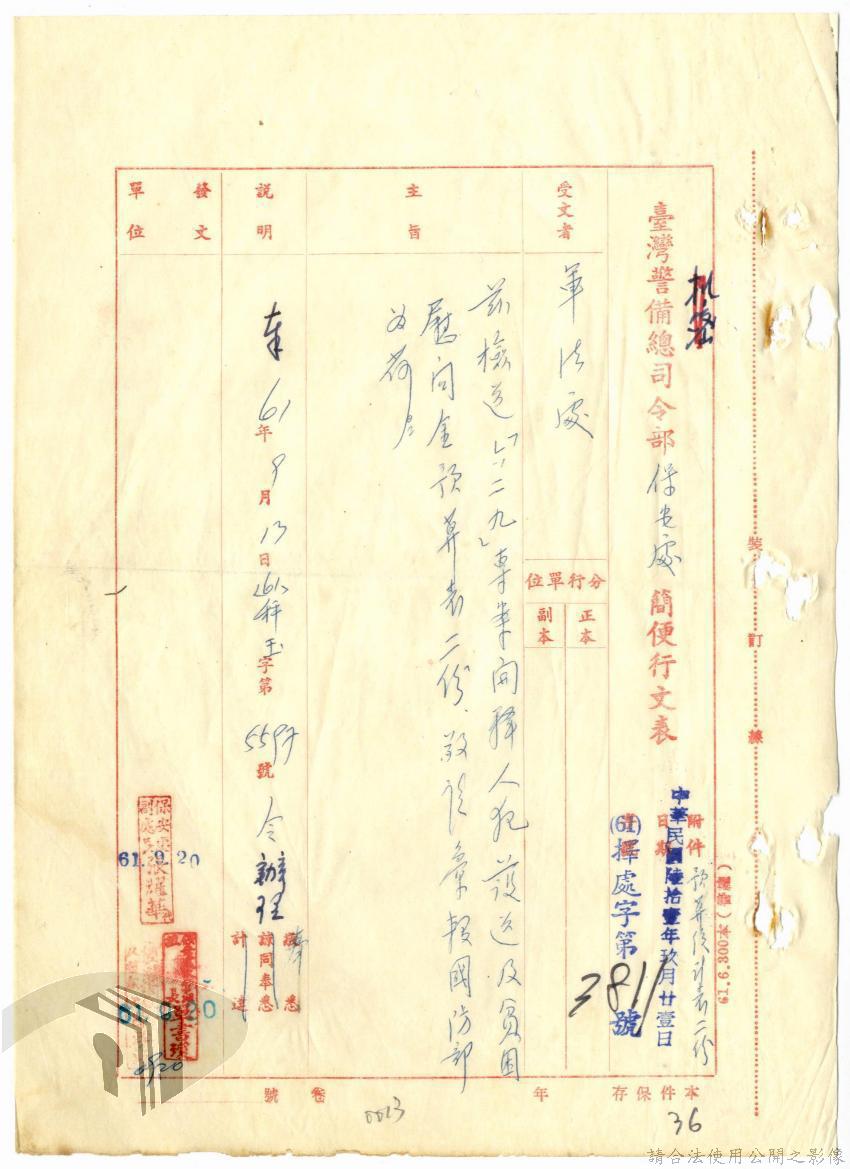 機密
臺灣警備總司令部保安處簡便行文表
附件 預算統計表二份
日期 中華民國陸拾壹年玖月廿壹日
(61)擇處字第3811號
受文者
軍法處
分行單位
正本
副本
主旨
茲檢送「六二九」專案開釋人犯護送及貧困
慰問金預算表二份、敬請彙報國防部
為荷。
說明
奉61年9月13日
字第5597號令辦理
發文單位
保安處副處長張耀華
61.9.20
61.9.20
0920
本件保存 年
卷 號
0013
36
裝訂線
請合法使用公開之影像